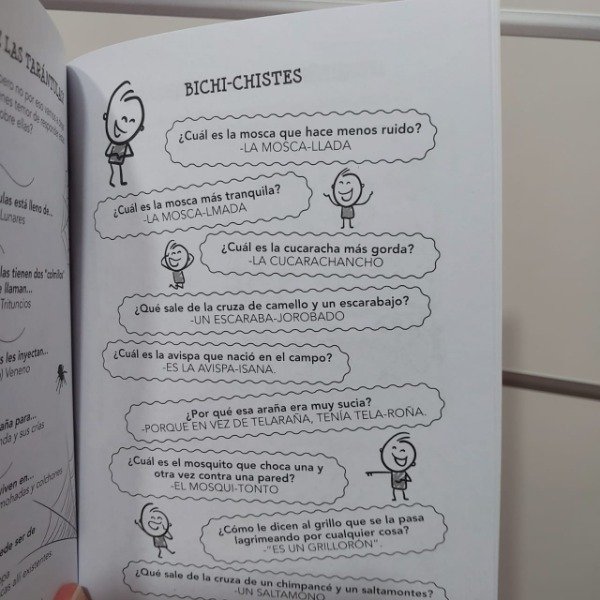 LAS TARÁNTULAS
pero no por eso
temor de
sobre ellas?
ulas está lleno de...
Lunares
las tienen dos "colmillos"
e llaman...
Trituncios
s les inyectan...
) Veneno
araña para...
nda y sus crías
viven en...
mohadas y colchones
ede ser de
opa
cas allí existentes
BICHI-CHISTES
¿Cuál es la mosca que hace menos ruido?
-LA MOSCA-LLADA
¿Cuál es la mosca más tranquila?
-LA MOSCA-LMADA
¿Cuál es la cucaracha más gorda?
-LA CUCARACHANCHO
¿Qué sale de la cruza de camello y un escarabajo?
-UN ESCARABA-JOROBADO
¿Cuál es la avispa que nació en el campo?
-ES LA AVISPA-ISANA.
¿Por qué esa araña era muy sucia?
-PORQUE EN VEZ DE TELARAÑA, TENÍA TELA-ROÑA.
¿Cuál es el mosquito que choca una y
otra vez contra una pared?
-EL MOSQUI-TONTO
¿Cómo le dicen al grillo que se la pasa
lagrimeando por cualquier cosa?
-"ES UN GRILLORÓN".
¿Qué sale de la cruza de un chimpancé y un saltamontes?
-UN SALTAMONO